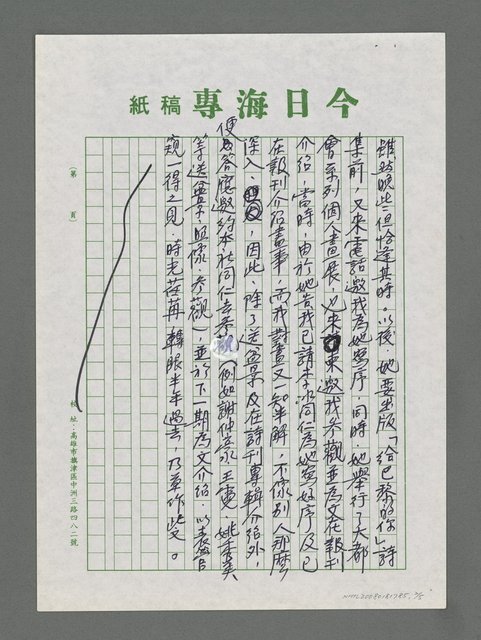 今日海專稿紙
雖然晚些，但恰逢其時。以後，她要出版「給巴黎的你」詩
集前，又來電話邀我為她寫序，同時，她舉行了大都
會系列個人畫展，也來柬邀我參觀並為文在報刊
介紹，當時，由於她告我已請李冰同仁為她寫好序及已
在報刊介紹畫事，而我對畫又一知半解，不像別人那麼
深入，因此，除了送盆景及在詩刊專輯介紹外，
便答應邀約本社同仁去參觀（例如謝仲永、王憲 姚秀英
等送盆景與像，參觀），並於下一期為文介紹，以盡管
窺一得之見。時光荏苒，轉眼半年過去，乃草作此文。
（第 頁）
校址：高雄市旗津區中洲三路四八二號